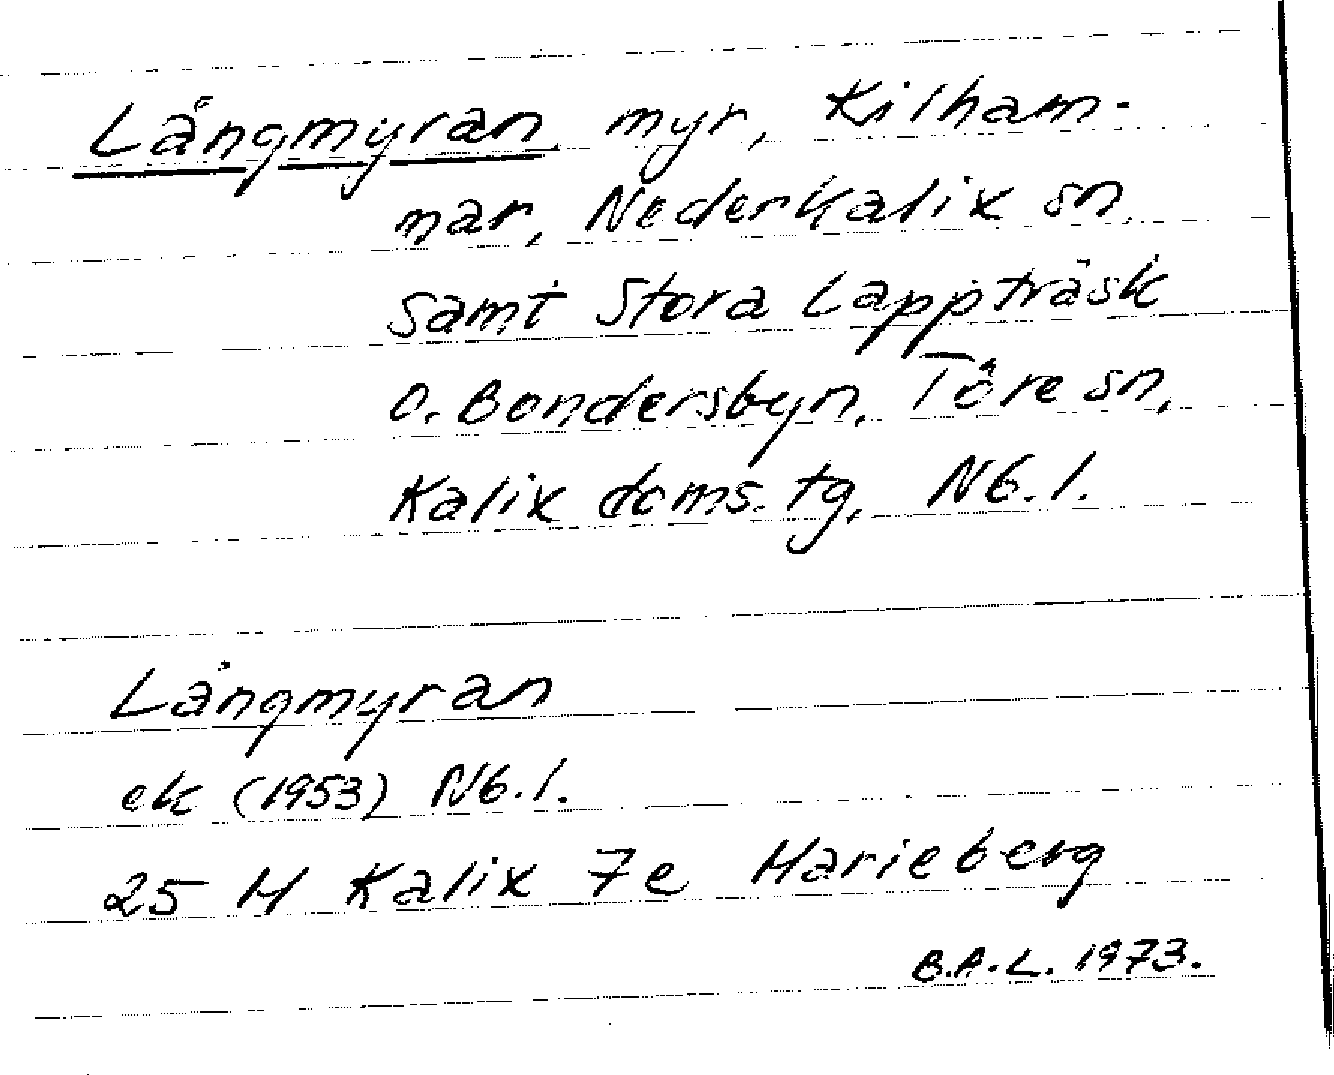 Långmyran myr, Kilham-
mar, Nederkalix sn
samt Stora Lappträsk
o. Bondersbyn, Töre sn,
Kalix doms. tg, Nb. l.
Långmyran
ek (1953) Nb. l.
25 M Kalix 7e Marieberg
B.A.L. 1973.